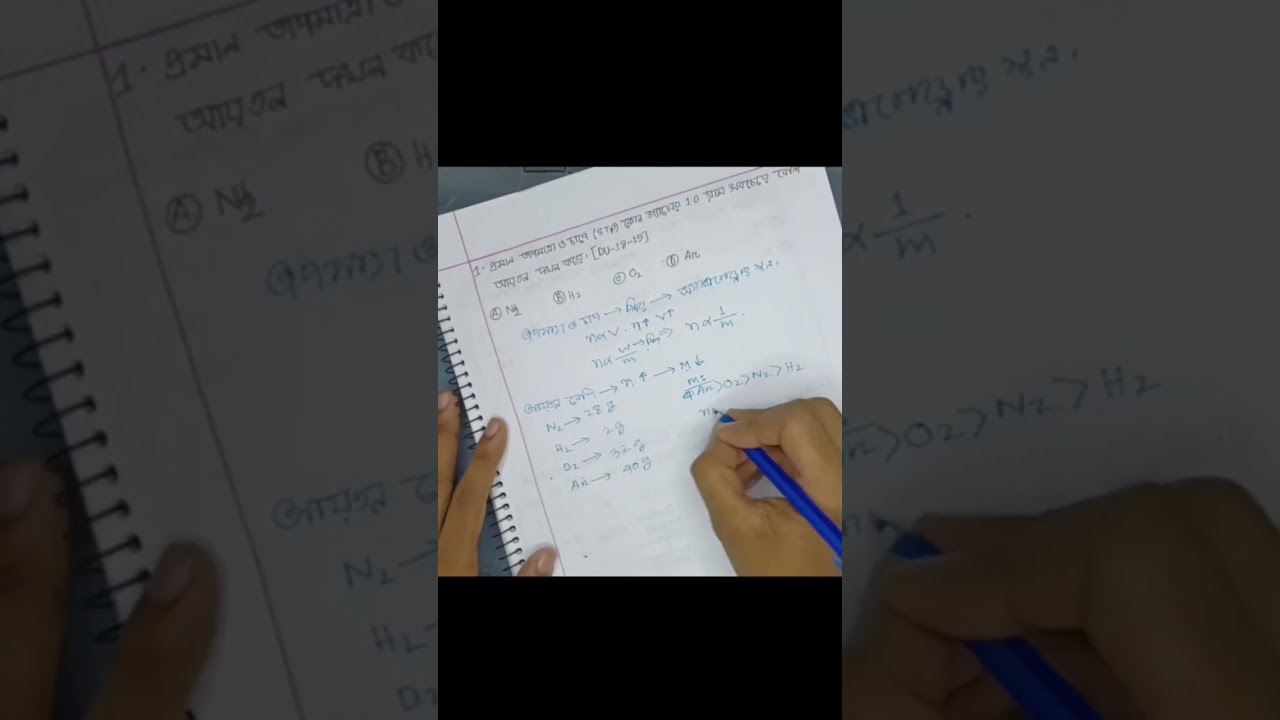 1. প্রমান তাপমাত্রা ও চাপে (STP) কোন গ্যাসের 10 গ্রাম সবচেয়ে বেশি
আয়তন দখল করে. [DU-18-19]
Ⓐ N2 Ⓑ H2 Ⓒ O2 Ⓓ Ar
তাপমাত্রা ও চাপ → স্থির → অ্যাভোগেড্রোর সূত্র.
n∝V. n↑ V↑
n∝ W/m → স্থির ⇒ n∝ 1/m.
আয়তন বেশি → n↑ → M↓
N2 → 28g
H2 → 2g
O2 → 32g
Ar → 40g
m:
Ar>O2>N2>H2
n